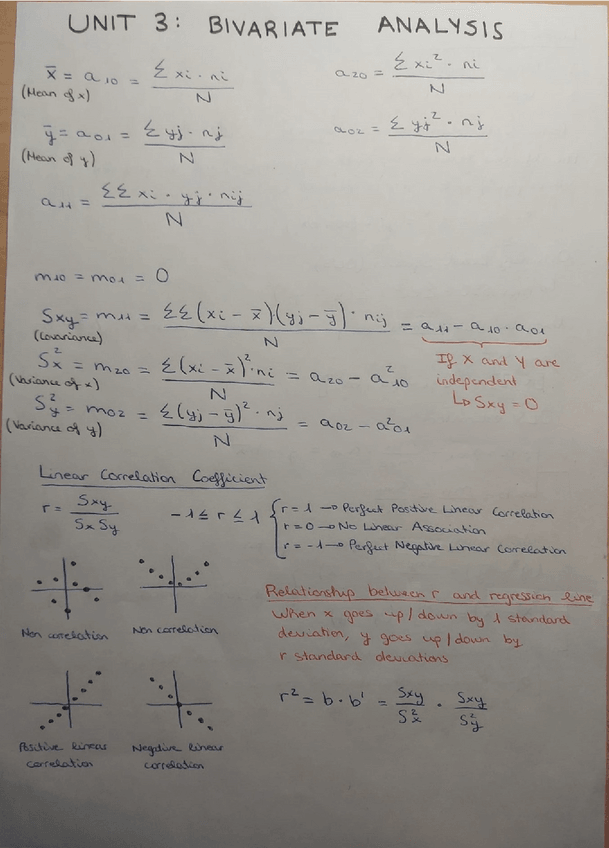 UNIT 3: BIVARIATE ANALYSIS
x̄ = a₁₀ = Σ xi · ni / N
(Mean of x)
a₂₀ = Σ xi² · ni / N
ȳ = a₀₁ = Σ yj · nj / N
(Mean of y)
a₀₂ = Σ yj² · nj / N
a₁₁ = ΣΣ xi · yj · nij / N
m₁₀ = m₀₁ = 0
Sxy = m₁₁ = ΣΣ(xi - x̄)·(yj - ȳ)· nij / N = a₁₁ - a₁₀ · a₀₁
(Covariance)
If X and Y are
independent
↳ Sxy = 0
S²x = m₂₀ = Σ(xi - x̄)²· ni / N = a₂₀ - a²₁₀
(Variance of x)
S²y = m₀₂ = Σ(yj - ȳ)² · nj / N = a₀₂ - a²₀₁
(Variance of y)
Linear Correlation Coefficient
r = Sxy / Sx Sy
-1 ≤ r ≤ 1
r = 1 → Perfect Positive Linear Correlation
r = 0 → No Linear Association
r = -1 → Perfect Negative Linear Correlation
Non correlation
Non correlation
Relationship between r and regression line
When x goes up/down by 1 standard
deviation, y goes up/down by
r standard deviations
r² = b · b' = Sxy / S²x · Sxy / S²y
Positive linear
correlation
Negative linear
correlation